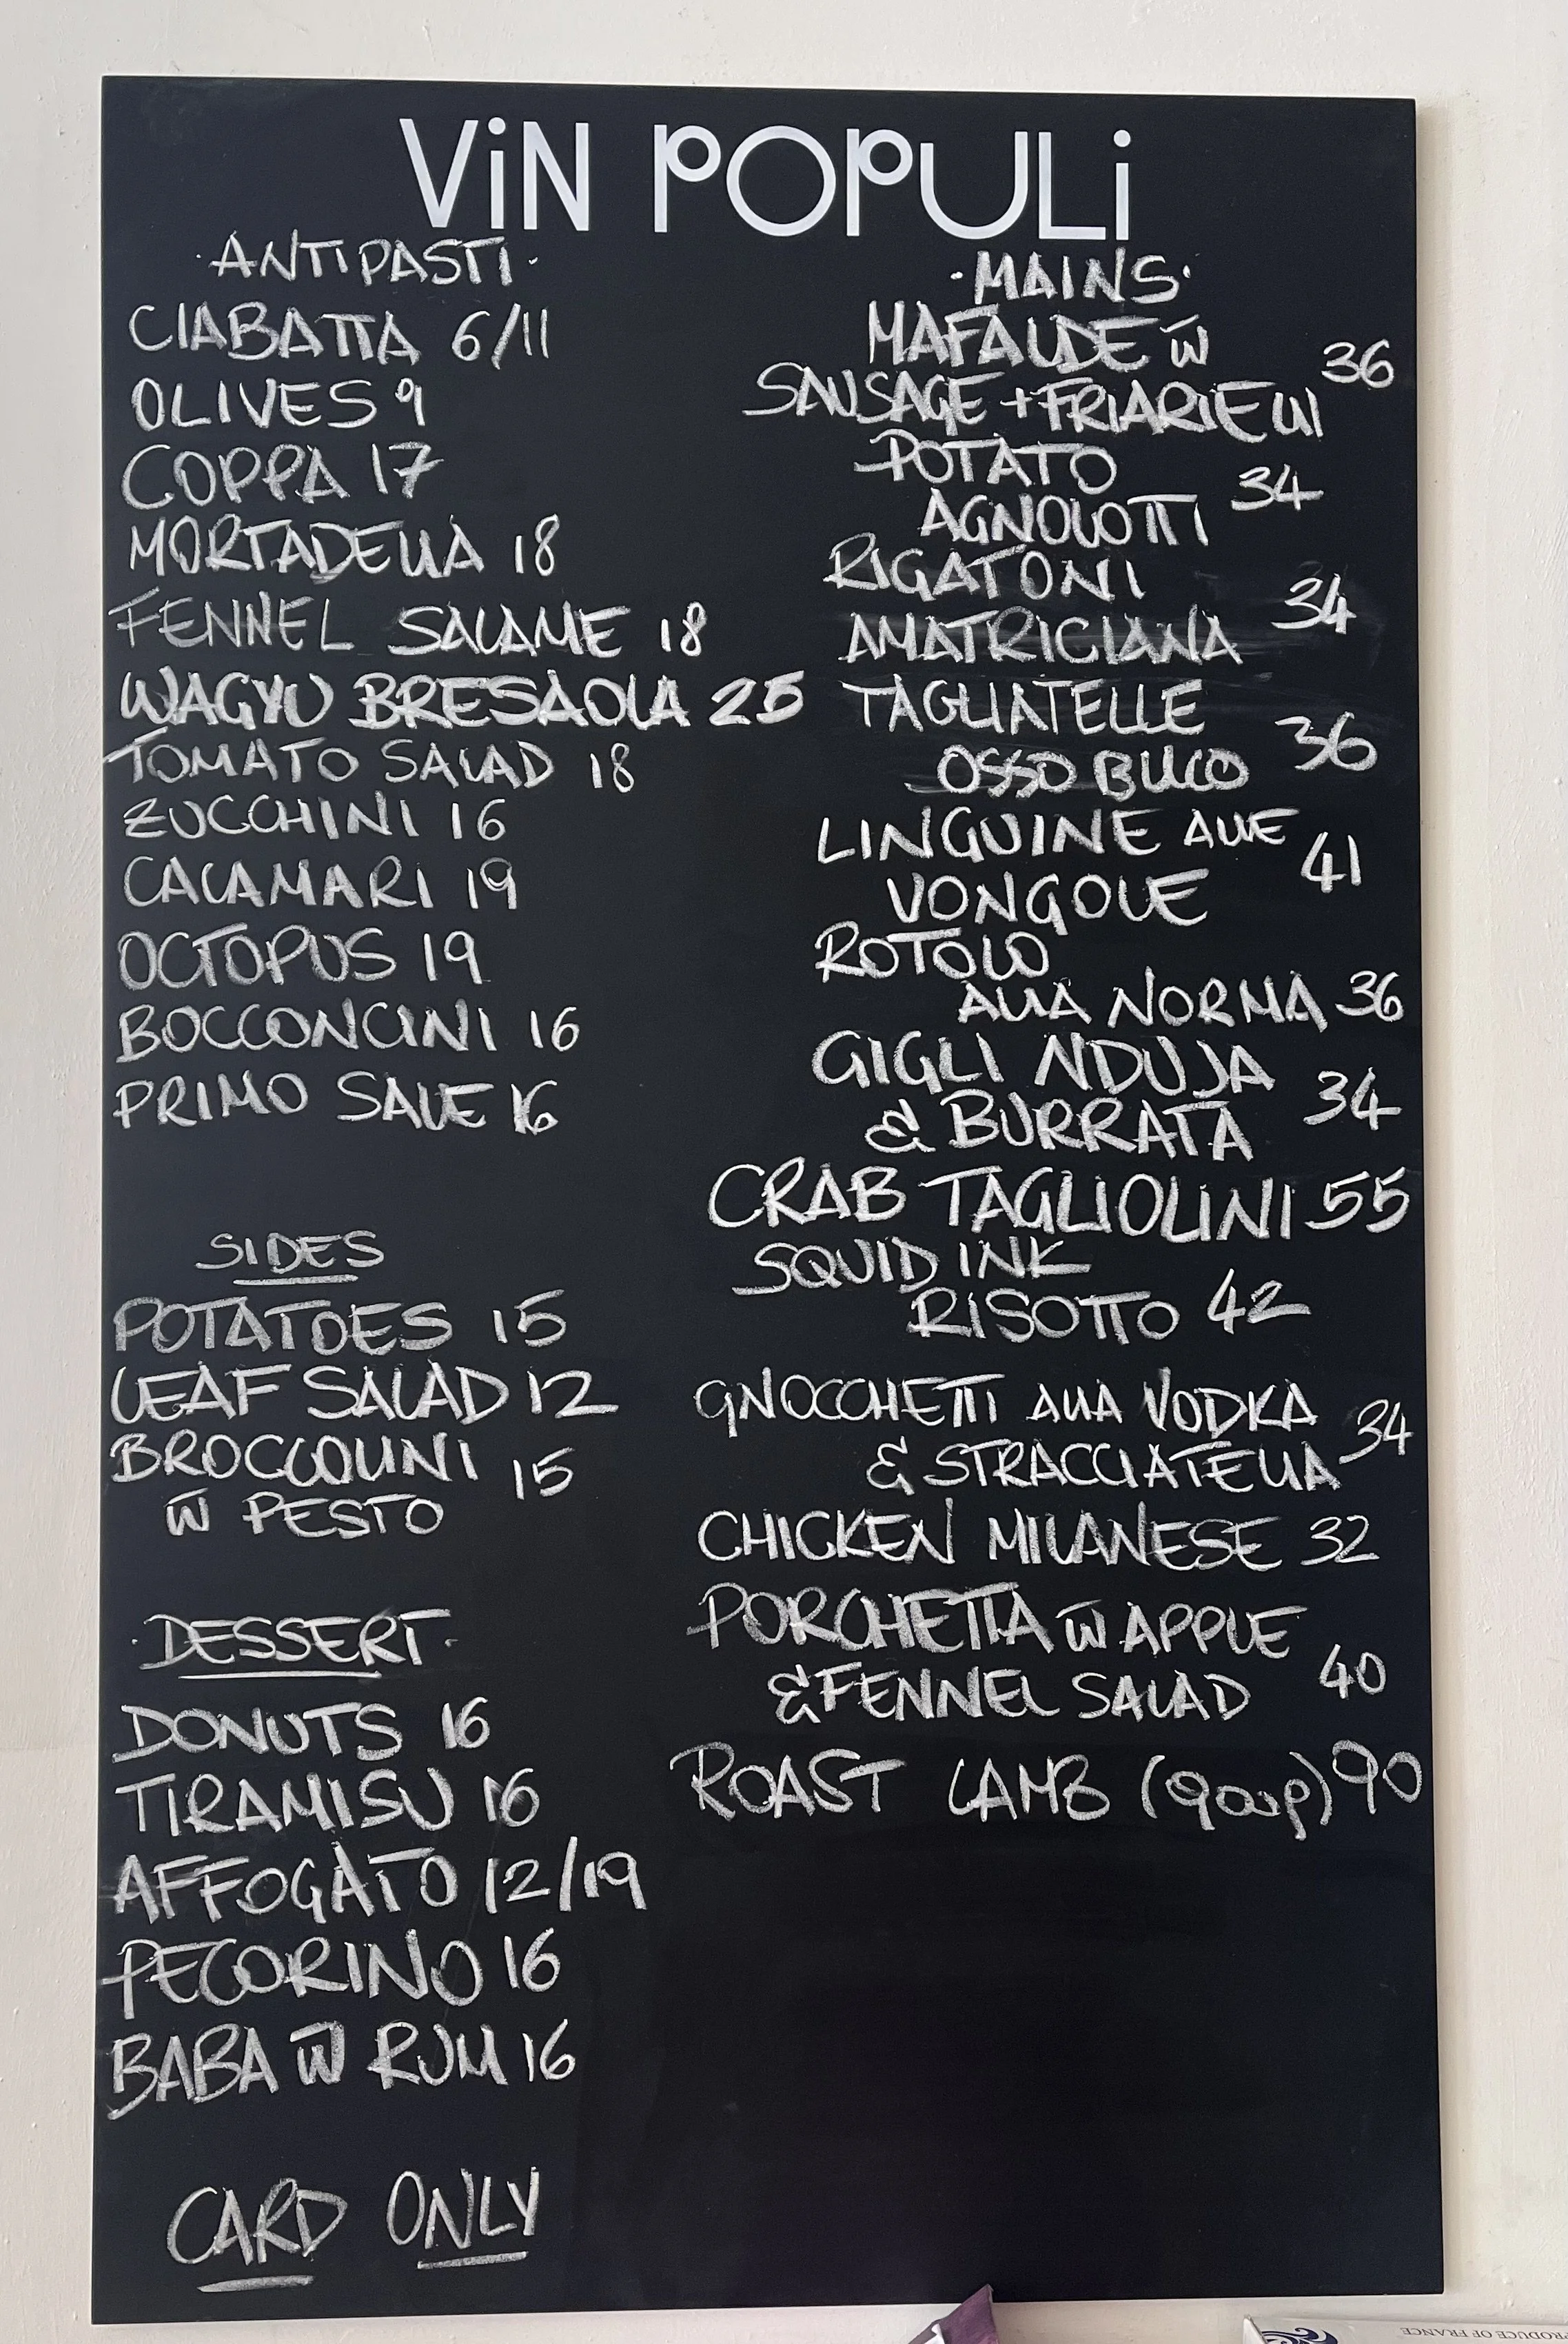 ViN POPULi
·ANTIPASTI·
CIABATTA 6/11
OLIVES 9
COPPA 17
MORTADELLA 18
FENNEL SALAME 18
WAGYU BRESAOLA 25
TOMATO SALAD 18
ZUCCHINI 16
CALAMARI 19
OCTOPUS 19
BOCCONCINI 16
PRIMO SALE 16
SIDES
POTATOES 15
LEAF SALAD 12
BROCCOLINI 15
W PESTO
·DESSERT·
DONUTS 16
TIRAMISU 16
AFFOGATO 12/19
PECORINO 16
BABA W RUM 16
CARD ONLY
·MAINS·
MAFALDE W
SAUSAGE + FRIARIELLI 36
POTATO
AGNOLOTTI 34
RIGATONI
AMATRICIANA 34
TAGLIATELLE
OSSO BUCO 36
LINGUINE ALLE
VONGOLE 41
ROTOLO
ALLA NORMA 36
GIGLI NDUJA
& BURRATA 34
CRAB TAGLIOLINI 55
SQUID INK
RISOTTO 42
GNOCCHETTI ALLA VODKA
& STRACCIATELLA 34
CHICKEN MILANESE 32
PORCHETTA W APPLE
& FENNEL SALAD 40
ROAST LAMB (900gr) 90
RODUCE OF FRANCE